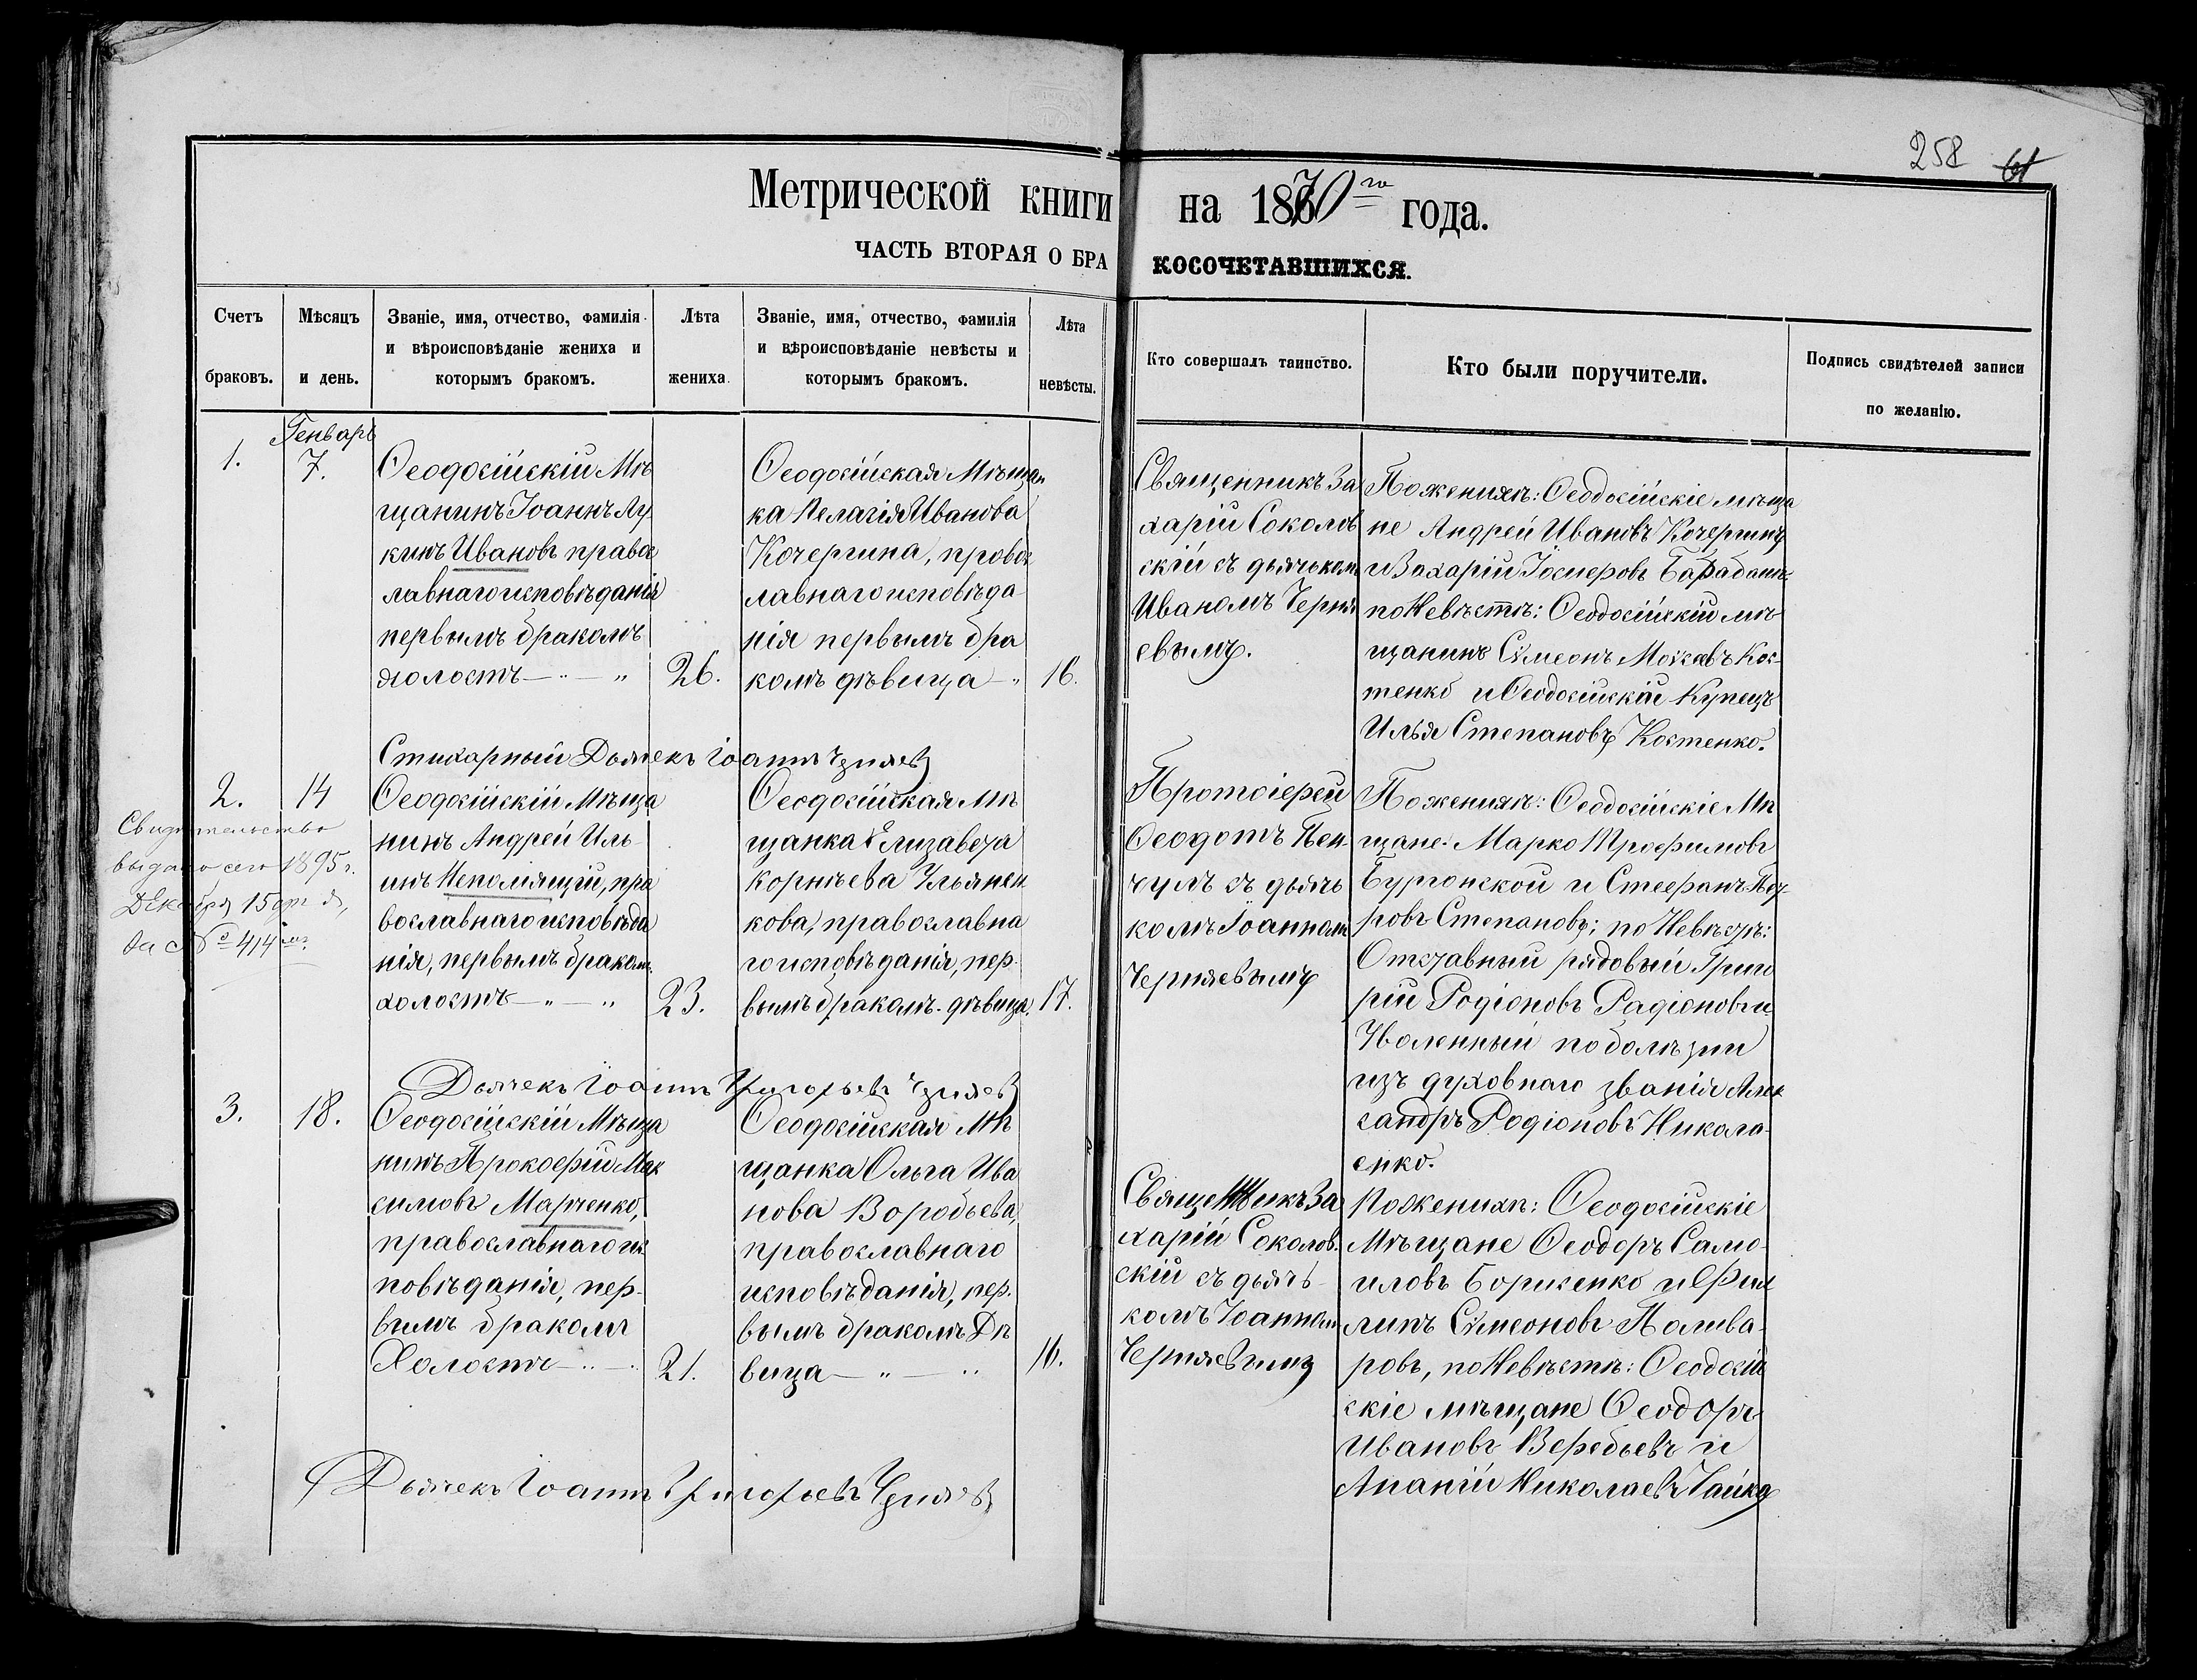 258 61
Метрической книги на 1870го года.
ЧАСТЬ ВТОРАЯ О БРАКОСОЧЕТАВШИХСЯ.
Счетъ браковъ.
Мѣсяцъ и день.
Званіе, имя, отчество, фамилія
и вѣроисповѣданіе жениха и
которымъ бракомъ.
Лѣта жениха.
Званіе, имя, отчество, фамилія
и вѣроисповѣданіе невѣсты и
которымъ бракомъ.
Лѣта невѣсты.
Кто совершалъ таинство.
Кто были поручители.
Подпись свидѣтелей записи
по желанію.
Генварь
1.
7.
Ѳеодосійскій Мѣ
щанинъ Іоаннъ Лу
кинъ Ивановъ правос
лавнаго исповѣданія
первымъ бракомъ
холостъ
26.
Ѳеодосійская Мѣщан
ка Пелагія Иванова
Кочергина, провос
лавнаго исповѣда
нія первымъ бра
комъ дѣвица
16.
Священникъ За
харій Соколов
скій съ дьячком
Иваномъ Черня
евымъ.
По женихѣ: Ѳеодосійскіе мѣща
не Андрей Ивановъ Кочергинъ
и Захарій Іосифовъ Барабашъ
по Невѣстѣ: Ѳеодосійскій мѣ
щанинъ Сѵмеонъ Кос-
тенко и Ѳеодосійскій Купецъ
Илья Степановъ Костенко.
Стихарный Дьячекъ Іоаннъ Черняевъ
2.
14
Ѳеодосійскій Мѣща
нинъ Андрей Иль-
инъ Непомящій, пра
вославнаго исповѣда
нія, первымъ браком
холостъ
23.
Ѳеодосійская Мѣ
щанка Елизавета
Корнѣева Ульянен
кова, православна
го исповѣданія, пер-
вымъ бракомъ. дѣвица.
17.
Протоіерей
Ѳеодотъ
съ дьяч
комъ Іоанном
Черняевымъ
По женихѣ: Ѳеодосійскіе Мѣ
щане. Марко Трофимовъ
Бургонской и Стефанъ
Степановъ; по Невѣстѣ:
Отставный рядовый Григо
рій Родіоновъ Радіоновъ и
Уволенный по болѣзни
изъ духовнаго званія Алек
сандръ Родіоновъ Никола-
енко.
Свидѣтельство
выдано сего 1895 г.
Декабря 15 дня,
за № 414
Дьячекъ Іоаннъ Григорьевъ Черняевъ
3.
18.
Ѳеодосійскій Мѣща
нинъ Прокофій Мак
симовъ Марченко,
православнаго ис
повѣданія, пер-
вымъ бракомъ
Холостъ
21.
Ѳеодосійская Мѣ
щанка Ольга Ива
нова Воробьева,
православнаго
исповѣданія, пер-
вымъ бракомъ Дѣ
вица
16.
Священникъ За
харій Соколов
скій съ дьяч-
комъ Іоанном
Черняевымъ
По женихѣ: Ѳеодосійскіе
Мѣщане Ѳеодоръ Само-
иловъ Борисенко и Фил
липъ Сѵмеоновъ Полива-
ровъ, по Невѣстѣ: Ѳеодосій
скіе мѣщане Ѳеодоръ
Ивановъ Веребьевъ и
Ананій Николаевъ Чайка
Дьячекъ Іоаннъ Григорьевъ Черняевъ